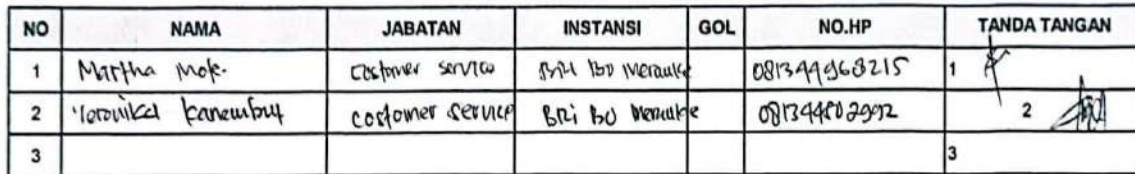 NO NAMA JABATAN INSTANSI GOL NO.HP TANDA TANGAN
1 Martha Mok. Costomer service BRI BO Merauke 081344968215 1
2 Veronika Kanembut costomer service BRI BO Merauke 2
3 3